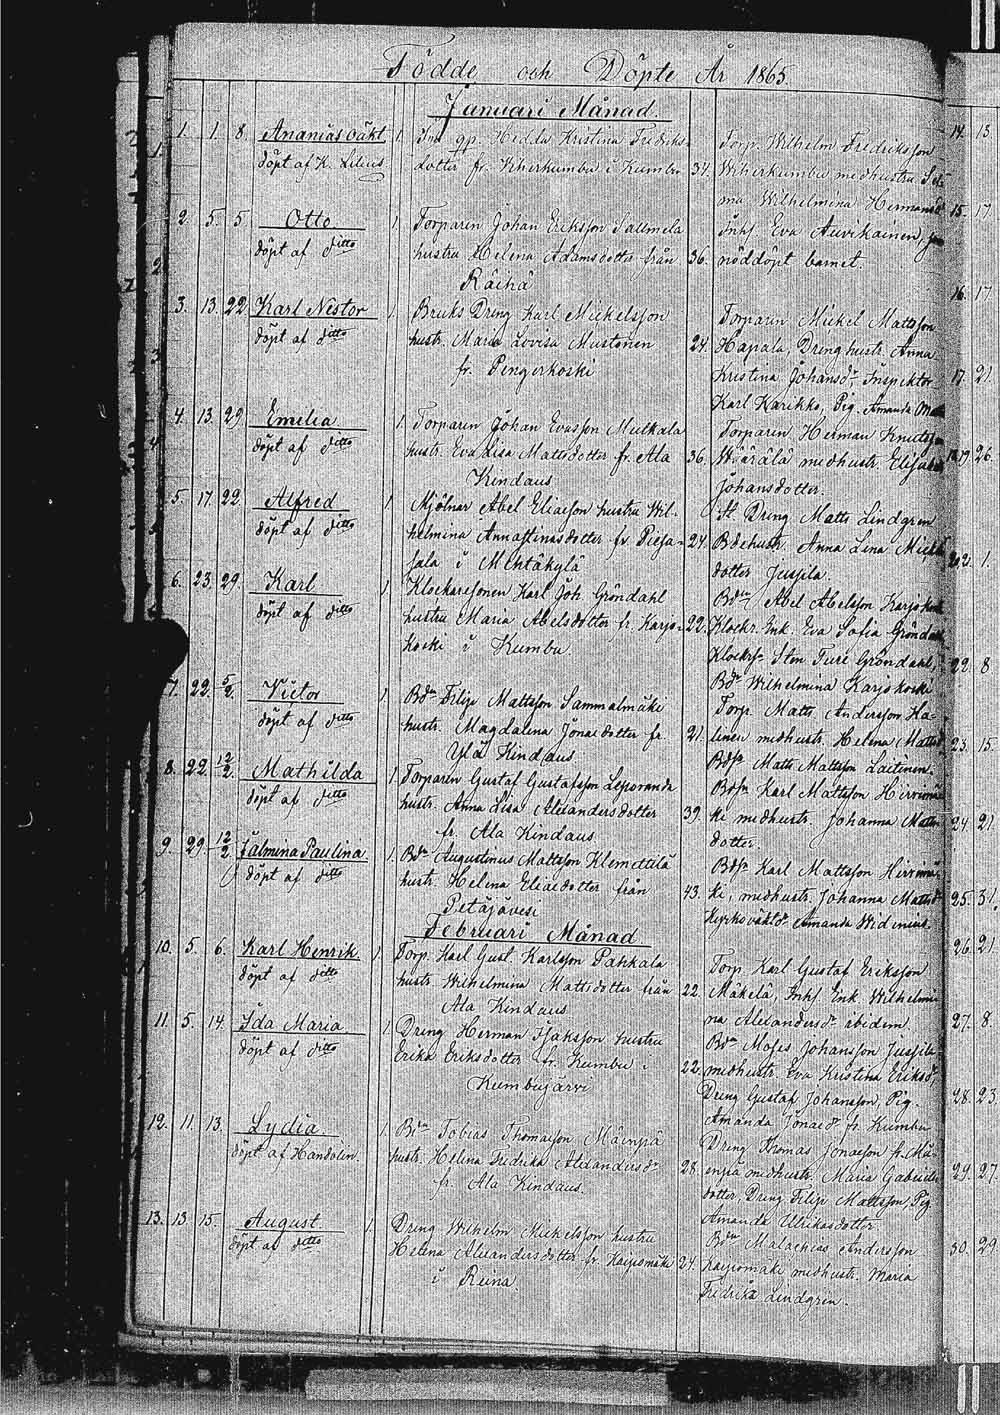 Födde och Döpte År 1865
Januari Månad.
1. 1. 8. Ananias oäkt 1. qp. Hedda Kristina Fredriks-
döpt af K. Lilius dotter fr. Wiherkumbu i Kumbu 34.
Torp. Wilhelm Fredriksson
Wiherkumbu medhustru
Wilhelmina Hermansd
Inhs Eva Auvikainen,
nöddöpt barnet.
2. 5. 5. Otto 1. Torparen Johan Eriksson Sallmela
döpt af ditto hustru Helena Adamsdotter från 36.
Räihä
3. 13. 22. Karl Nestor 1. Bruks Dreng Karl Mickelsson
döpt af ditto hustr. Maria Lovisa Mustonen 24.
fr. Pengerkoski
Torparen Mickel Mattsson
Hapala, Drenghustr. Anna
Kristina Johansdr Inspektor
Karl Karikko, Pig. Amanda
4. 13. 29. Emilia 1. Torparen Johan Evasson Mulkala
döpt af ditto hustr. Eva Lisa Mattsdotter fr. Ala 36.
Kindaus
Torparen Herman Knutsson
Wärälä medhustr. Elisabet
Johansdotter.
5. 17. 22. Alfred 1. Mjölnar Abel Eliaeson hustru Wil-
döpt af ditto helmina Annastinasdotter fr Piesa- 24.
sala i Mehtäkylä
Dreng Matts Lindgren
Bdehustr. Anna Lena
dotter Jussila.
6. 23. 29. Karl 1. Klockaresonen Karl Joh. Gröndahl
döpt af ditto hustru Maria Abelsdotter fr. Karjo- 22.
koski i Kumbu
Bdn Abel Abelsson Karjokoski
Klockr. Enk. Eva Sofia Gröndahl
Klockrsn Sten Ture Gröndahl,
Bdr Wilhelmina Karjokoski
7. 22. 5/2. Victor 1. Bdn Filip Mattsson Sammalmäki
döpt af ditto hustr. Magdalena Jonaedotter fr. 21.
Ylä Kindaus
Torp. Matts Andersson Ha-
linen medhustr. Helena Mattsd
Bdsn Matts Mattsson Laitinen.
8. 22. 12/2. Mathilda 1. Torparen Gustaf Gustafsson Leporanda
döpt af ditto hustr. Anna Lisa Alexandersdotter 39.
fr. Ala Kindaus
Bdsn Karl Mattsson Hirvimä
ki medhustr. Johanna Matts
dotter.
9. 29. 12/2 Jalmina Paulina 1. Bdn Augustinus Mattsson Klemettilä
döpt af ditto hustr. Helena Eliaedotter från 43.
Petäjävesi
Bdsn Karl Mattsson Hirvimä
ki, medhustr. Johanna Mattsd
Kyrkoväktdr Amanda Widenius.
Februari Månad
10. 5. 6. Karl Henrik 1. Torp. Karl Gust. Karlsson Pahkala
döpt af ditto hustr. Wilhelmina Mattsdotter från 22.
Ala Kindaus
Torp. Karl Gustaf Eriksson
Mäkelä, Inhs Enk Wilhelmi
na Alexandersdr ibidem.
11. 5. 14. Ida Maria 1. Dreng Herman Isaksson hustru
döpt af ditto Erika Eriksdotter fr. Kumbu 22.
Kumbujärvi
Bdn Moses Johansson Jussila
medhustr. Eva Kristina Eriksd,
Dreng Gustaf Johansson, Pig.
Amanda Jonaedr fr. Kumbu
12. 11. 13. Lydia. 1. Bdn Tobias Thomaeson Mäenpä
döpt af Handolin. hustr. Helena Fredrika Alexandersdr 28.
fr. Ala Kindaus.
Dreng Thomas Jonaeson fr. Mä
enpä medhustr. Maria Gabriels
dotter, Dreng Filip Mattsson, Pig
Amanda Ulrikasdotter.
13. 13. 15. August. 1. Dreng Wilhelm Mickelsson hustru
döpt af ditto Helena Alexandersdotter fr. Kaipomäki 24.
i Reina
Bdn Malachias Andersson
Kaipomäki medhustr. Maria
Fredrika Lindgren.
14. 13.
15. 17.
16. 17.
17. 21.
19. 26.
22. 8.
23. 15.
24. 21.
25. 31.
26. 21.
27. 8.
28. 23.
29. 27.
30. 29.